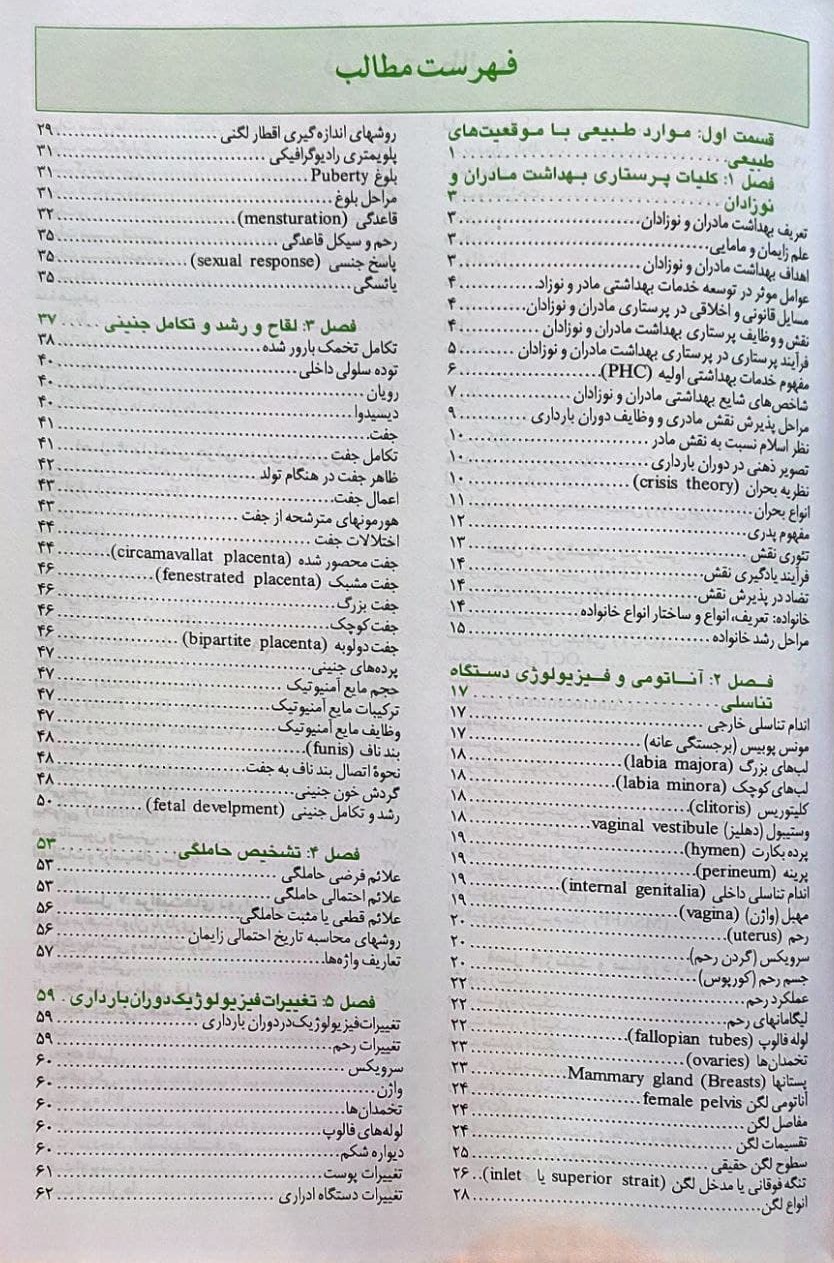 فهرست مطالب
قسمت اول: موارد طبیعی با موقعیت‌های
طبیعی ........ ۱
فصل ۱: کلیات پرستاری بهداشت مادران و
نوزادان ........ ۳
تعریف بهداشت مادران و نوزادان ........ ۳
علم زایمان و مامایی ........ ۳
اهداف بهداشت مادران و نوزادان ........ ۳
عوامل موثر در توسعه خدمات بهداشتی مادر و نوزاد ........ ۴
مسایل قانونی و اخلاقی در پرستاری مادران و نوزادان ........ ۴
نقش و وظایف پرستاری بهداشت مادران و نوزادان ........ ۴
فرآیند پرستاری در پرستاری بهداشت مادران و نوزادان ........ ۵
مفهوم خدمات بهداشتی اولیه (PHC) ........ ۶
شاخص‌های شایع بهداشتی مادران و نوزادان ........ ۷
مراحل پذیرش نقش مادری و وظایف دوران بارداری ........ ۹
نظر اسلام نسبت به نقش مادر ........ ۱۰
تصویر ذهنی در دوران بارداری ........ ۱۰
نظریه بحران (crisis theory) ........ ۱۰
انواع بحران ........ ۱۱
مفهوم پدری ........ ۱۲
تئوری نقش ........ ۱۳
فرآیند یادگیری نقش ........ ۱۴
تضاد در پذیرش نقش ........ ۱۴
خانواده: تعریف، انواع و ساختار انواع خانواده ........ ۱۴
مراحل رشد خانواده ........ ۱۵
فصل ۲: آناتومی و فیزیولوژی دستگاه
تناسلی ........ ۱۷
اندام تناسلی خارجی ........ ۱۷
مونس پوبیس (برجستگی عانه) ........ ۱۷
لب‌های بزرگ (labia majora) ........ ۱۸
لب‌های کوچک (labia minora) ........ ۱۸
کلیتوریس (clitoris) ........ ۱۸
وستیبول (دهلیز) vaginal vestibule ........ ۱۸
پرده بکارت (hymen) ........ ۱۹
پرینه (perineum) ........ ۱۹
اندام تناسلی داخلی (internal genitalia) ........ ۱۹
مهبل (واژن) (vagina) ........ ۱۹
رحم (uterus) ........ ۲۰
سرویکس (گردن رحم) ........ ۲۰
جسم رحم (کورپوس) ........ ۲۰
عملکرد رحم ........ ۲۲
لیگامانهای رحم ........ ۲۲
لوله فالوپ (fallopian tubes) ........ ۲۲
تخمدان‌ها (ovaries) ........ ۲۳
پستانها Mammary gland (Breasts) ........ ۲۳
آناتومی لگن female pelvis ........ ۲۴
مفاصل لگن ........ ۲۴
تقسیمات لگن ........ ۲۴
سطوح لگن حقیقی ........ ۲۵
تنگه فوقانی یا مدخل لگن (superior strait یا inlet) .. ۲۶
انواع لگن ........ ۲۸
روشهای اندازه‌گیری اقطار لگنی ........ ۲۹
پلویمتری رادیوگرافیکی ........ ۳۱
بلوغ Puberty ........ ۳۱
مراحل بلوغ ........ ۳۱
قاعدگی (mensturation) ........ ۳۲
رحم و سیکل قاعدگی ........ ۳۵
پاسخ جنسی (sexual response) ........ ۳۵
یائسگی ........ ۳۵
فصل ۳: لقاح و رشد و تکامل جنینی ..... ۳۷
تکامل تخمک بارور شده ........ ۳۸
توده سلولی داخلی ........ ۴۰
رویان ........ ۴۰
دیسیدوا ........ ۴۰
جفت ........ ۴۱
تکامل جفت ........ ۴۱
ظاهر جفت در هنگام تولد ........ ۴۲
اعمال جفت ........ ۴۳
هورمونهای مترشحه از جفت ........ ۴۳
اختلالات جفت ........ ۴۴
جفت محصور شده (circamavallat placenta) ........ ۴۴
جفت مشبک (fenestrated placenta) ........ ۴۶
جفت بزرگ ........ ۴۶
جفت کوچک ........ ۴۶
جفت دولوبه (bipartite placenta) ........ ۴۶
پرده‌های جنینی ........ ۴۷
حجم مایع آمنیوتیک ........ ۴۷
ترکیبات مایع آمنیوتیک ........ ۴۷
وظایف مایع آمنیوتیک ........ ۴۷
بند ناف (funis) ........ ۴۸
نحوهٔ اتصال بند ناف به جفت ........ ۴۸
گردش خون جنینی ........ ۴۸
رشد و تکامل جنینی (fetal develpment) ........ ۵۰
فصل ۴: تشخیص حاملگی ........ ۵۳
علائم فرضی حاملگی ........ ۵۳
علائم احتمالی حاملگی ........ ۵۳
علائم قطعی یا مثبت حاملگی ........ ۵۶
روشهای محاسبه تاریخ احتمالی زایمان ........ ۵۶
تعاریف واژه‌ها ........ ۵۷
فصل ۵: تغییرات فیزیولوژیک دوران بارداری . ۵۹
تغییرات فیزیولوژیک در دوران بارداری ........ ۵۹
تغییرات رحم ........ ۵۹
سرویکس ........ ۶۰
واژن ........ ۶۰
تخمدان‌ها ........ ۶۰
لوله‌های فالوپ ........ ۶۰
دیواره شکم ........ ۶۰
تغییرات پوست ........ ۶۱
تغییرات دستگاه ادراری ........ ۶۲